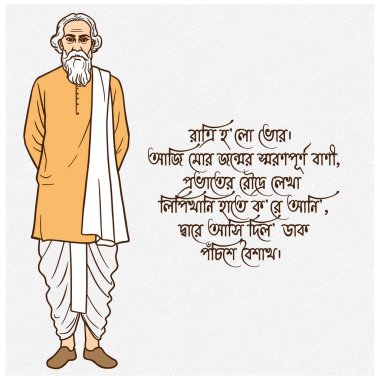 রাত্রি হ'লো ভোর।
আজি মোর জন্মের স্মরণপূর্ণ বাণী,
প্রভাতের রৌদ্রে লেখা
লিপিখানি হাতে ক'রে আনি',
দ্বারে আসি দিল' ডাক
পঁচিশে বৈশাখ।